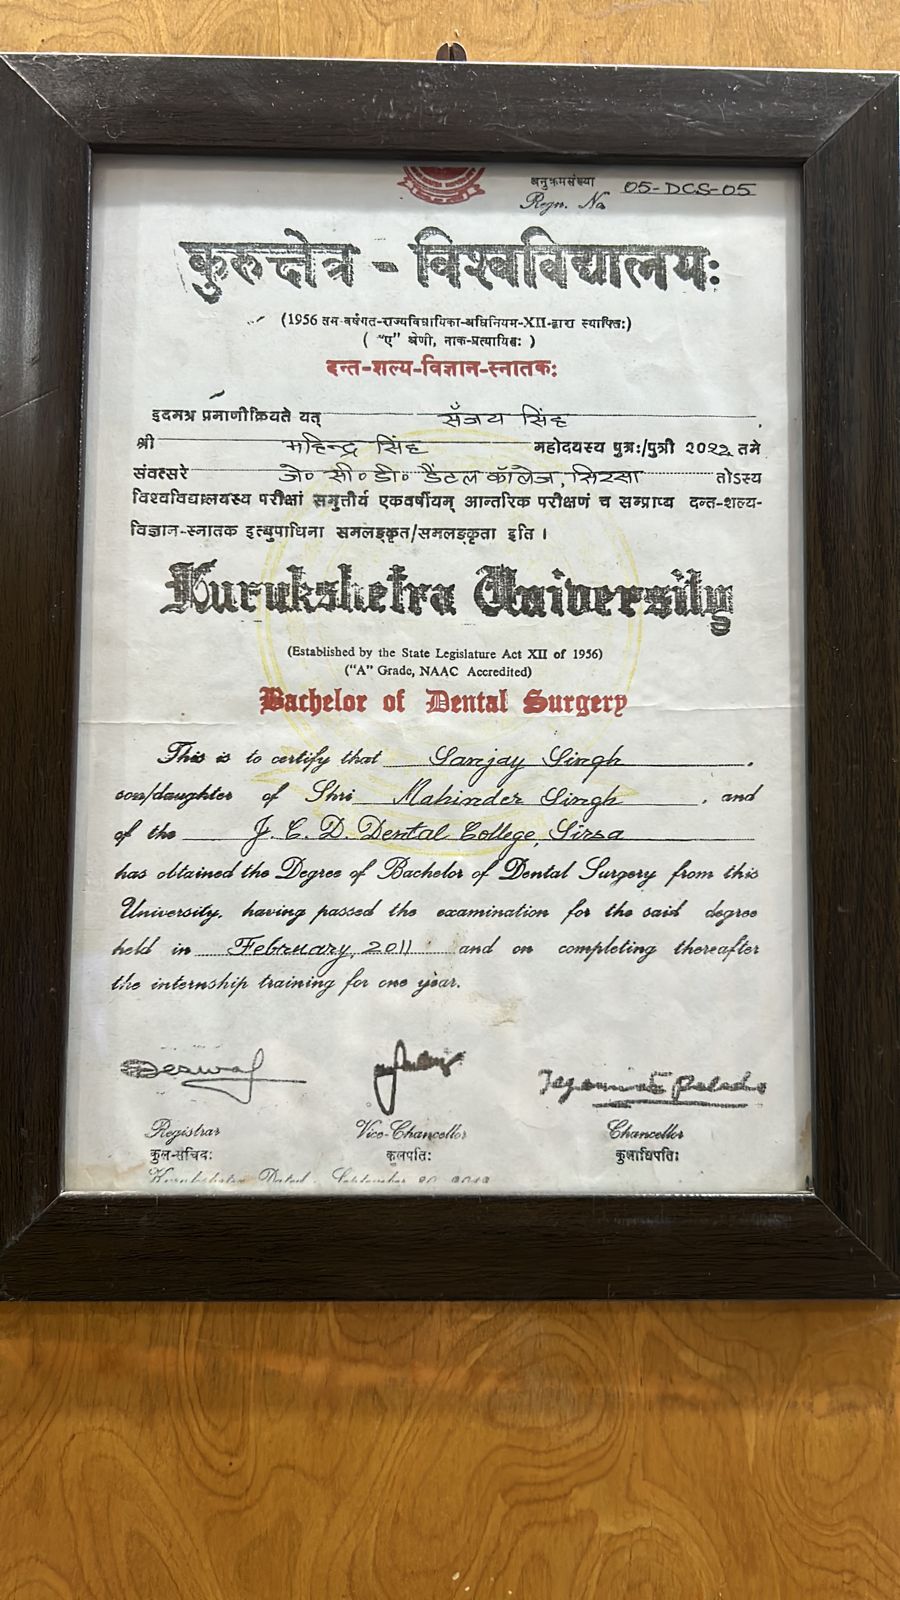 अनुक्रमसंख्या 05-DCS-05
Regn. No
कुरुक्षेत्र - विश्वविद्यालयः
(1956 तम-वर्षगत-राज्यविधायिका-अधिनियम-XII-द्वारा स्थापितः)
( “ए” श्रेणी, नाक-प्रत्यायितः )
दन्त-शल्य-विज्ञान-स्नातकः
इदमत्र प्रमाणीक्रियते यत् सँजय सिंह
श्री महिन्द्र सिंह महोदयस्य पुत्रः/पुत्री तमे
संवत्सरे जे० सी० डी० डैंटल कॉलेज, सिरसा तोऽस्य
विश्वविद्यालयस्य परीक्षां समुत्तीर्य एकवर्षीयम् आन्तरिक परीक्षणं च सम्प्राप्य दन्त-शल्य-
विज्ञान-स्नातक इत्युपाधिना समलङ्कृत/समलङ्कृता इति ।
Kurukshetra University
(Established by the State Legislature Act XII of 1956)
(“A” Grade, NAAC Accredited)
Bachelor of Dental Surgery
This is to certify that Sanjay Singh
son/daughter of Shri Mahinder Singh , and
of the J. C. D. Dental College, Sirsa
has obtained the Degree of Bachelor of Dental Surgery from this
University, having passed the examination for the said degree
held in February, 2011 and on completing thereafter
the internship training for one year.
Registrar Vice-Chancellor Chancellor
कुल-सचिवः कुलपतिः कुलाधिपतिः